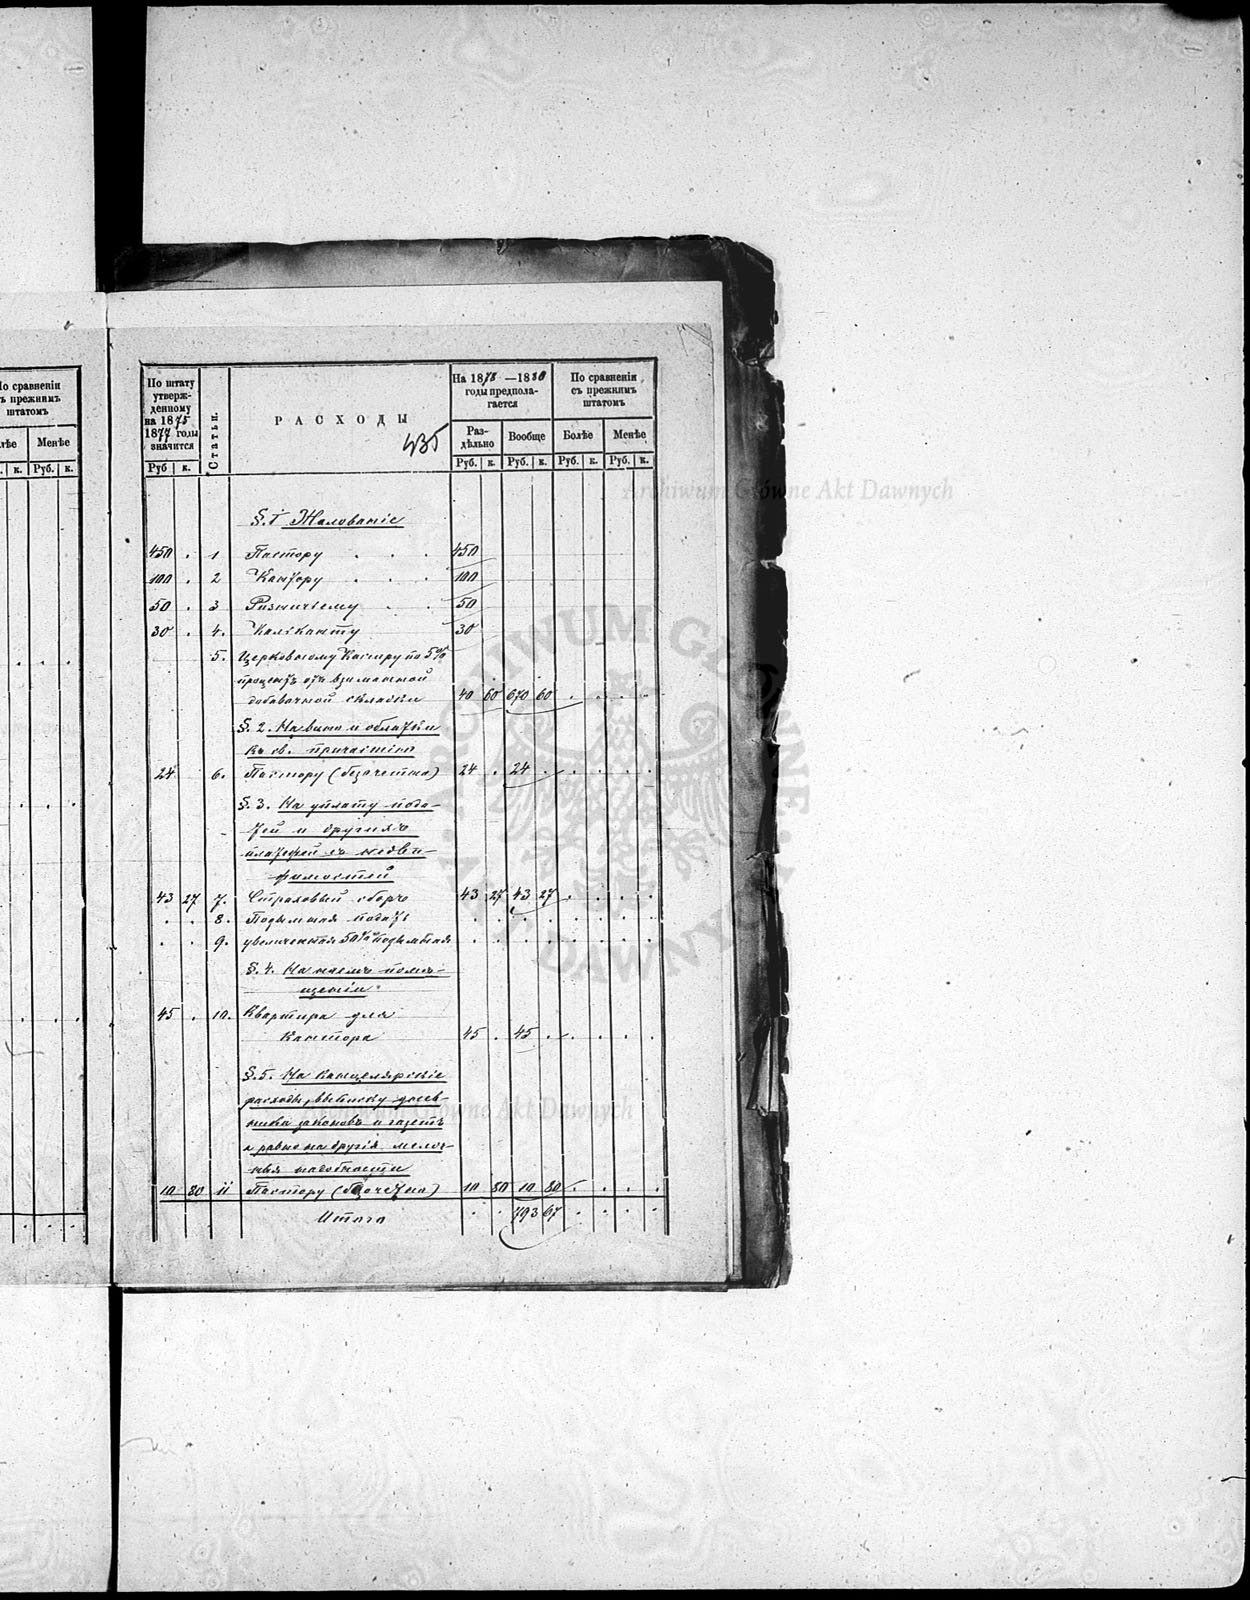 По сравненіи
съ прежнимъ
штатомъ
Менѣе
к. Руб. к.
По штату
утверж-
денному
на 1875
1877 годы
значится
Руб к.
Статьи.
РАСХОДЫ
435
На 1878 —1880
годы предпола-
гается
Раз-
дѣльно
Вообще
Руб. к. Руб. к.
По сравненіи
съ прежнимъ
штатомъ.
Болѣе Менѣе
Руб. к. Руб. к.
§. 1 Жалованіе
450 . 1 Пастору . . . 450
100 . 2 Кантору . . . 100
50 . 3 Ризничему . . 50
30 . 4. Каликанту 30
5. Церковному Кассиру по 5%
процентъ отъ взимаемой
добавочной складки 40 60 670 60 . . . .
§. 2. На вино и облатки
къ св. причастію
24 6. Пастору (безотчетно) 24 . 24 . . . . .
§. 3. На уплату пода-
тей и другихъ
платежей съ недви-
жимостей
43 27 7. Страховый сборъ 43 27 43 27 . . . .
. . 8. Подымная подать . . . . . . . .
. . 9. увеличенная 50% подымная . . . . . . . .
§. 4. На наемъ помѣ-
щенія
45 . 10. Квартира для
Кантора 45 . 45 . . . . .
§. 5. На канцелярскіе
расходы, выписку днев-
ника законовъ и газетъ
а равно на другія мелоч-
ныя надобности
10 80 11 Пастору (безотчетно) 10 80 10 80 . . . .
Итого . . 793 67 . . . .
Archiwum Główne Akt Dawnych
ARCHIWUM GŁÓWNE AKT DAWNYCH
Archiwum Główne Akt Dawnych